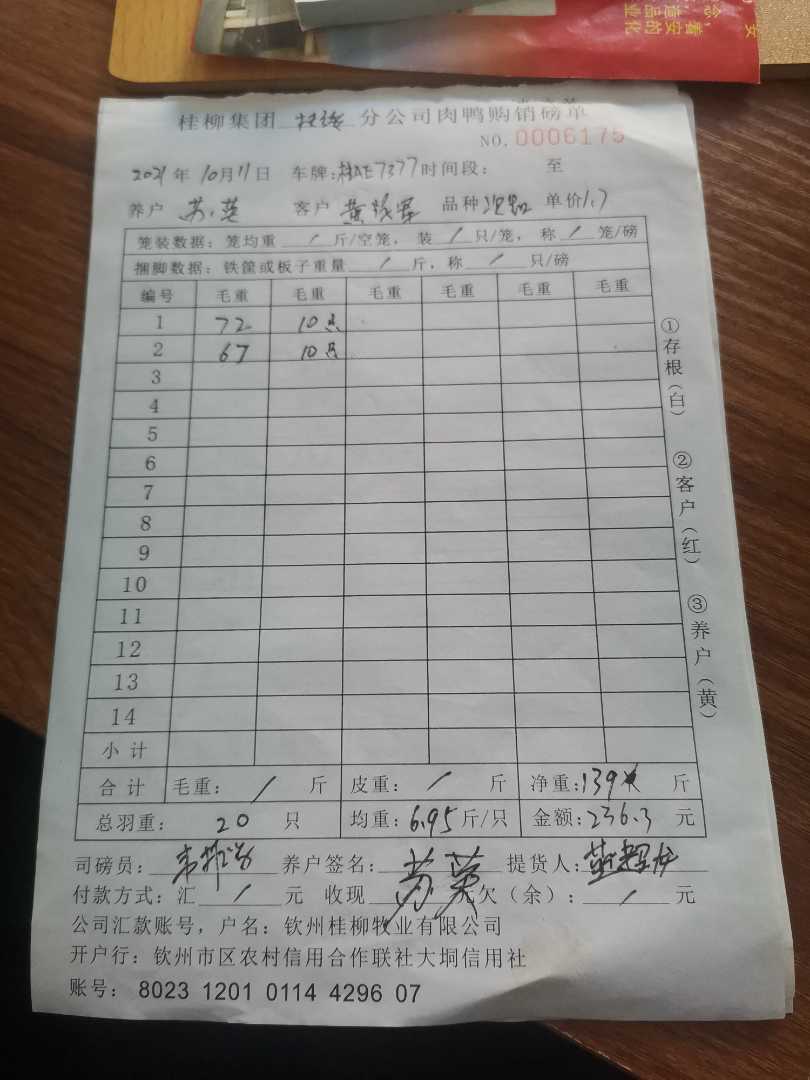 桂柳集团 分公司肉鸭购销磅单
NO. 0006175
2021年10月11日 车牌: 7377 时间段: 至
养户 苏英 客户 黄 军 品种 单价1.7
笼装数据: 笼均重 / 斤/空笼, 装 / 只/笼, 称 / 笼/磅
捆脚数据: 铁筐或板子重量 / 斤, 称 / 只/磅
编号 毛重 毛重 毛重 毛重 毛重 毛重
1 72 10只
2 67 10只
3
4
5
6
7
8
9
10
11
12
13
14
小计
合计 毛重: / 斤 皮重: / 斤 净重:139 斤
总羽重: 20 只 均重:6.95斤/只 金额:236.3 元
司磅员: 养户签名: 苏英 提货人:
付款方式:汇 / 元 收现 欠(余): / 元
公司汇款账号,户名: 钦州桂柳牧业有限公司
开户行: 钦州市区农村信用合作联社大垌信用社
账号: 8023 1201 0114 4296 07
①存根(白)
②客户(红)
③养户(黄)